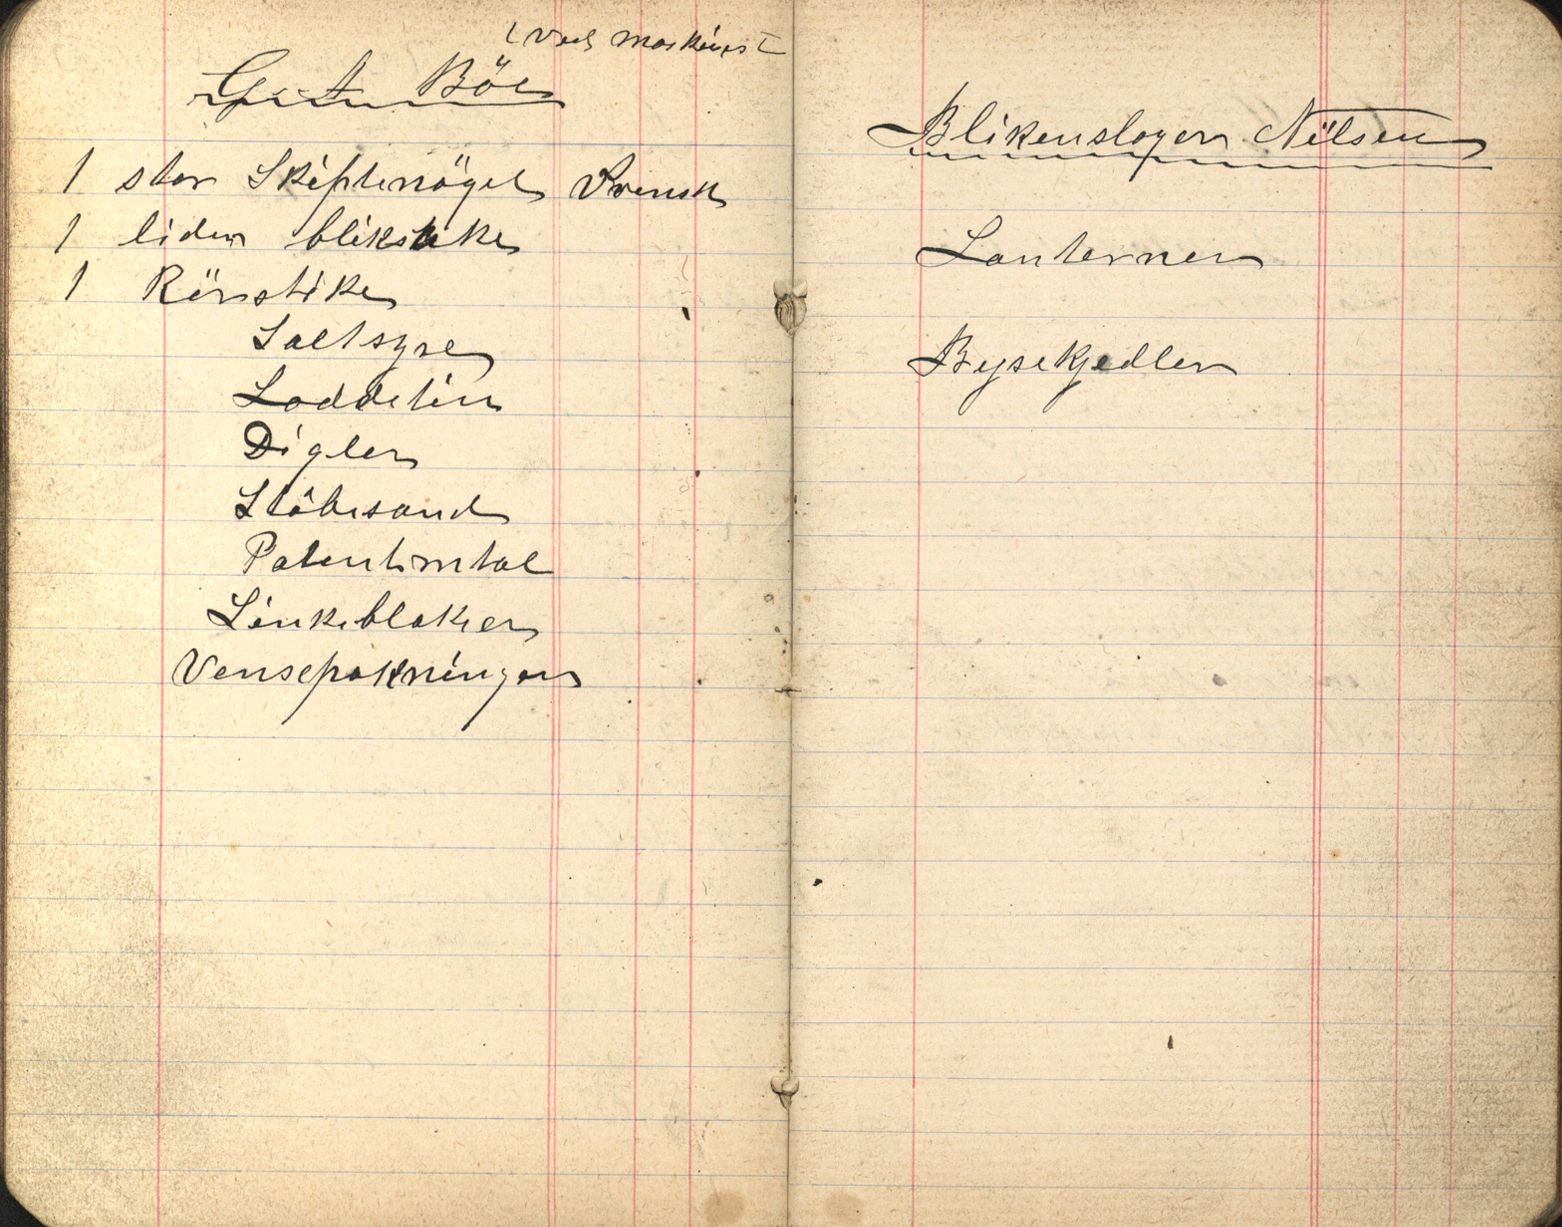 (Ved maskinist
G. A. Böe
1 stor Skiftenögel Svensk
1 liden blikstike
1 Rörstike
Saltsyre
Loddetin
Digler
Stöbesand
Patentmetal
Linkeblaker
Vensepakninger
Blikenslager Nilsen
Lanterner
Bysekjedler